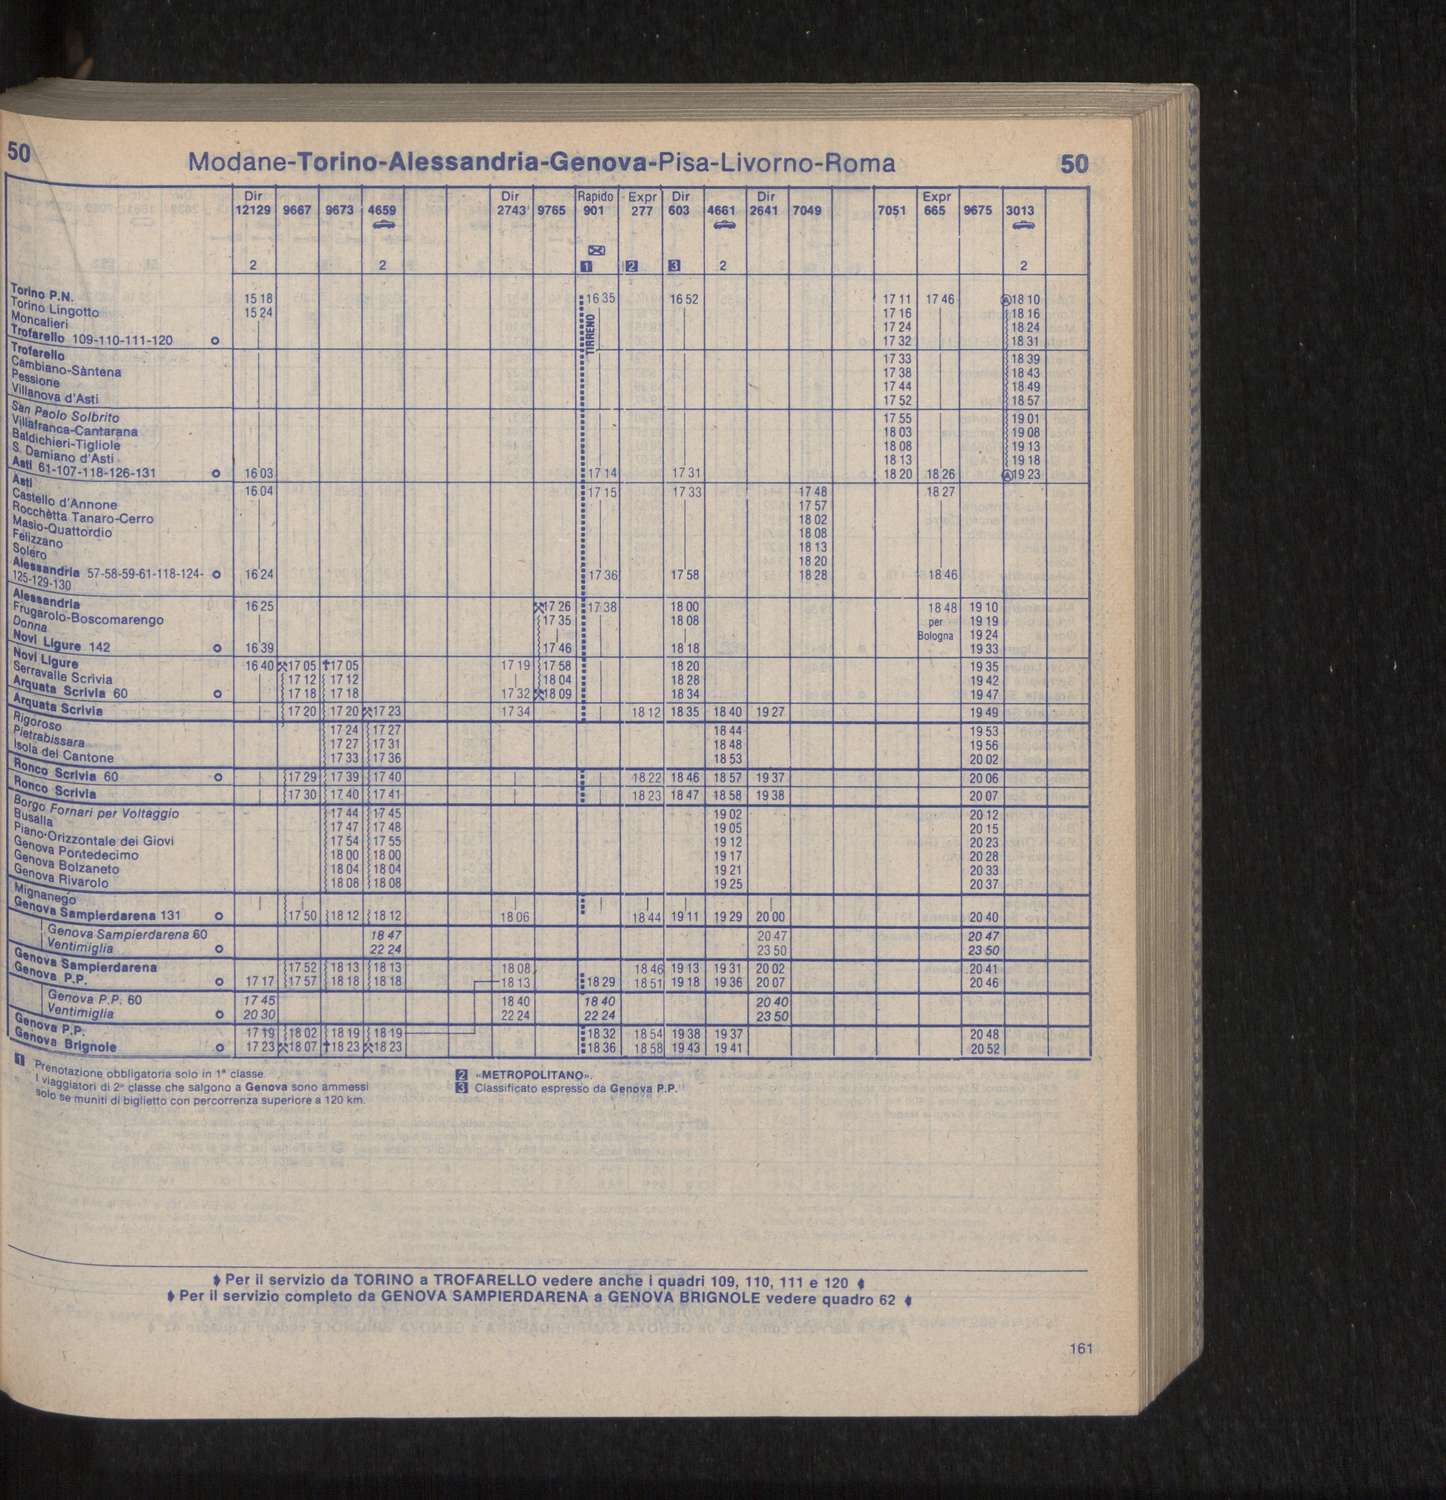 50 Modane-Torino-Alessandria-Genova-Pisa-Livorno-Roma 50
Dir Dir Rapido Expr Dir Dir Expr
12129 9667 9673 4659 2743 9765 901 277 603 4661 2641 7049 7051 665 9675 3013
2 2 1 2 3 2 2
TIRRENO
Torino P.N. 15 18 16 35 16 52 17 11 17 46 A 18 10
Torino Lingotto 15 24 17 16 18 16
Moncalieri 17 24 18 24
Trofarello 109-110-111-120 o 17 32 18 31
Trofarello 17 33 18 39
Cambiano-Sàntena 17 38 18 43
Pessione 17 44 18 49
Villanova d'Asti 17 52 18 57
San Paolo Solbrito 17 55 19 01
Villafranca-Cantarana 18 03 19 08
Baldichieri-Tigliole 18 08 19 13
S. Damiano d'Asti 18 13 19 18
Asti 61-107-118-126-131 o 16 03 17 14 17 31 18 20 18 26 A 19 23
Asti 16 04 17 15 17 33 17 48 18 27
Castello d'Annone 17 57
Rocchètta Tanaro-Cerro 18 02
Masio-Quattordio 18 08
Felizzano 18 13
Solèro 18 20
Alessandria 57-58-59-61-118-124- o 16 24 17 36 17 58 18 28 18 46
125-129-130
Alessandria 16 25 17 26 17 38 18 00 18 48 19 10
Frugarolo-Boscomarengo 17 35 18 08 per 19 19
Donna Bologna 19 24
Novi Ligure 142 o 16 39 17 46 18 18 19 33
Novi Ligure 16 40 17 05 17 05 17 19 17 58 18 20 19 35
Serravalle Scrivia 17 12 17 12 18 04 18 28 19 42
Arquata Scrivia 60 o 17 18 17 18 17 32 18 09 18 34 19 47
Arquata Scrivia 17 20 17 20 17 23 17 34 18 12 18 35 18 40 19 27 19 49
Rigoroso 17 24 17 27 18 44 19 53
Pietrabissara 17 27 17 31 18 48 19 56
Isola del Cantone 17 33 17 36 18 53 20 02
Ronco Scrivia 60 o 17 29 17 39 17 40 18 22 18 46 18 57 19 37 20 06
Ronco Scrivia 17 30 17 40 17 41 18 23 18 47 18 58 19 38 20 07
Borgo Fornari per Voltaggio 17 44 17 45 19 02 20 12
Busalla 17 47 17 48 19 05 20 15
Piano-Orizzontale dei Giovi 17 54 17 55 19 12 20 23
Genova Pontedecimo 18 00 18 00 19 17 20 28
Genova Bolzaneto 18 04 18 04 19 21 20 33
Genova Rivarolo 18 08 18 08 19 25 20 37
Mignanego
Genova Sampierdarena 131 o 17 50 18 12 18 12 18 06 18 44 19 11 19 29 20 00 20 40
Genova Sampierdarena 60 18 47 20 47 20 47
Ventimiglia o 22 24 23 50 23 50
Genova Sampierdarena 17 52 18 13 18 13 18 08 18 46 19 13 19 31 20 02 20 41
Genova P.P. o 17 17 17 57 18 18 18 18 18 13 18 29 18 51 19 18 19 36 20 07 20 46
Genova P.P. 60 17 45 18 40 18 40 20 40
Ventimiglia o 20 30 22 24 22 24 23 50
Genova P.P. 17 19 18 02 18 19 18 19 18 32 18 54 19 38 19 37 20 48
Genova Brignole o 17 23 18 07 18 23 18 23 18 36 18 58 19 43 19 41 20 52
1 Prenotazione obbligatoria solo in 1ª classe.
I viaggiatori di 2ª classe che salgono a Genova sono ammessi
solo se muniti di biglietto con percorrenza superiore a 120 km.
2 «METROPOLITANO».
3 Classificato espresso da Genova P.P.
Per il servizio da TORINO a TROFARELLO vedere anche i quadri 109, 110, 111 e 120
Per il servizio completo da GENOVA SAMPIERDARENA a GENOVA BRIGNOLE vedere quadro 62
161